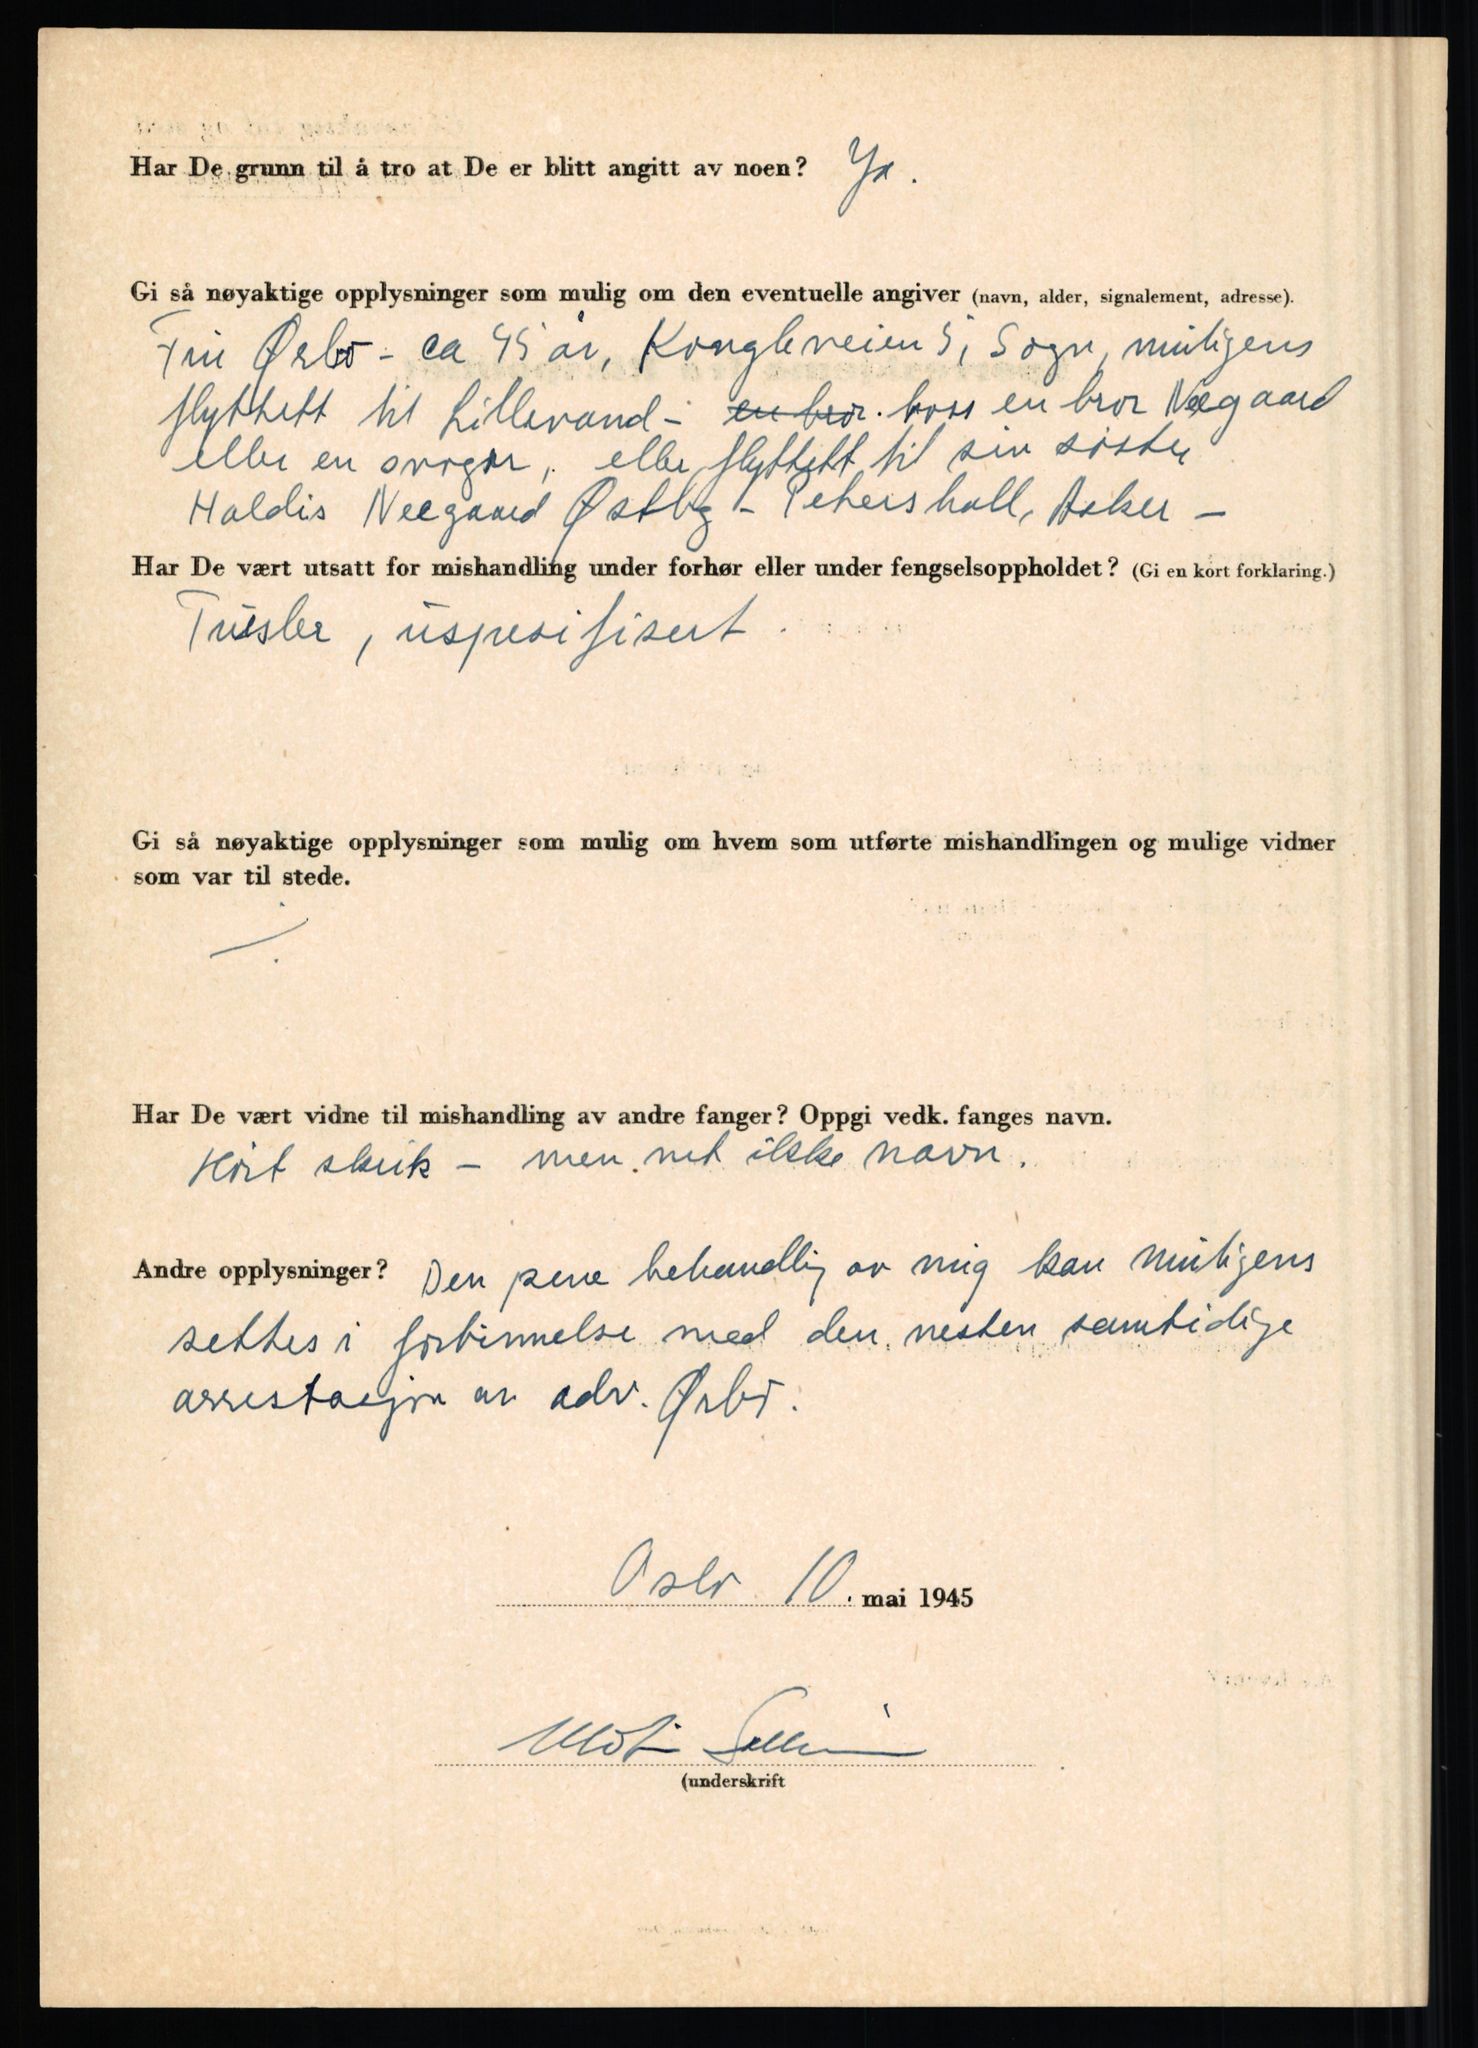 Har De grunn til å tro at De er blitt angitt av noen? Ja.
Gi så nøyaktige opplysninger som mulig om den eventuelle angiver (navn, alder, signalement, adresse).
Fru Ørbo - ca 45 år, Kongleveien 5, Sogn, muligens
flyttett til Lillesand - en bror. hoss en bror Neegaard
eller en svoger, eller flyttett til sin söster
Haldis Neegaard Østby - Petershall, Asker -
Har De vært utsatt for mishandling under forhør eller under fengselsoppholdet? (Gi en kort forklaring.)
Trusler, uspesifisert.
Gi så nøyaktige opplysninger som mulig om hvem som utførte mishandlingen og mulige vidner
som var til stede.
Har De vært vidne til mishandling av andre fanger? Oppgi vedk. fanges navn.
Hört skrik - men vet ikke navn.
Andre opplysninger? Den pene behandling av mig kan muligens
settes i forbinnelse med den nesten samtidige
arrestasjon av adv. Ørbo.
Oslo 10. mai 1945
(underskrift